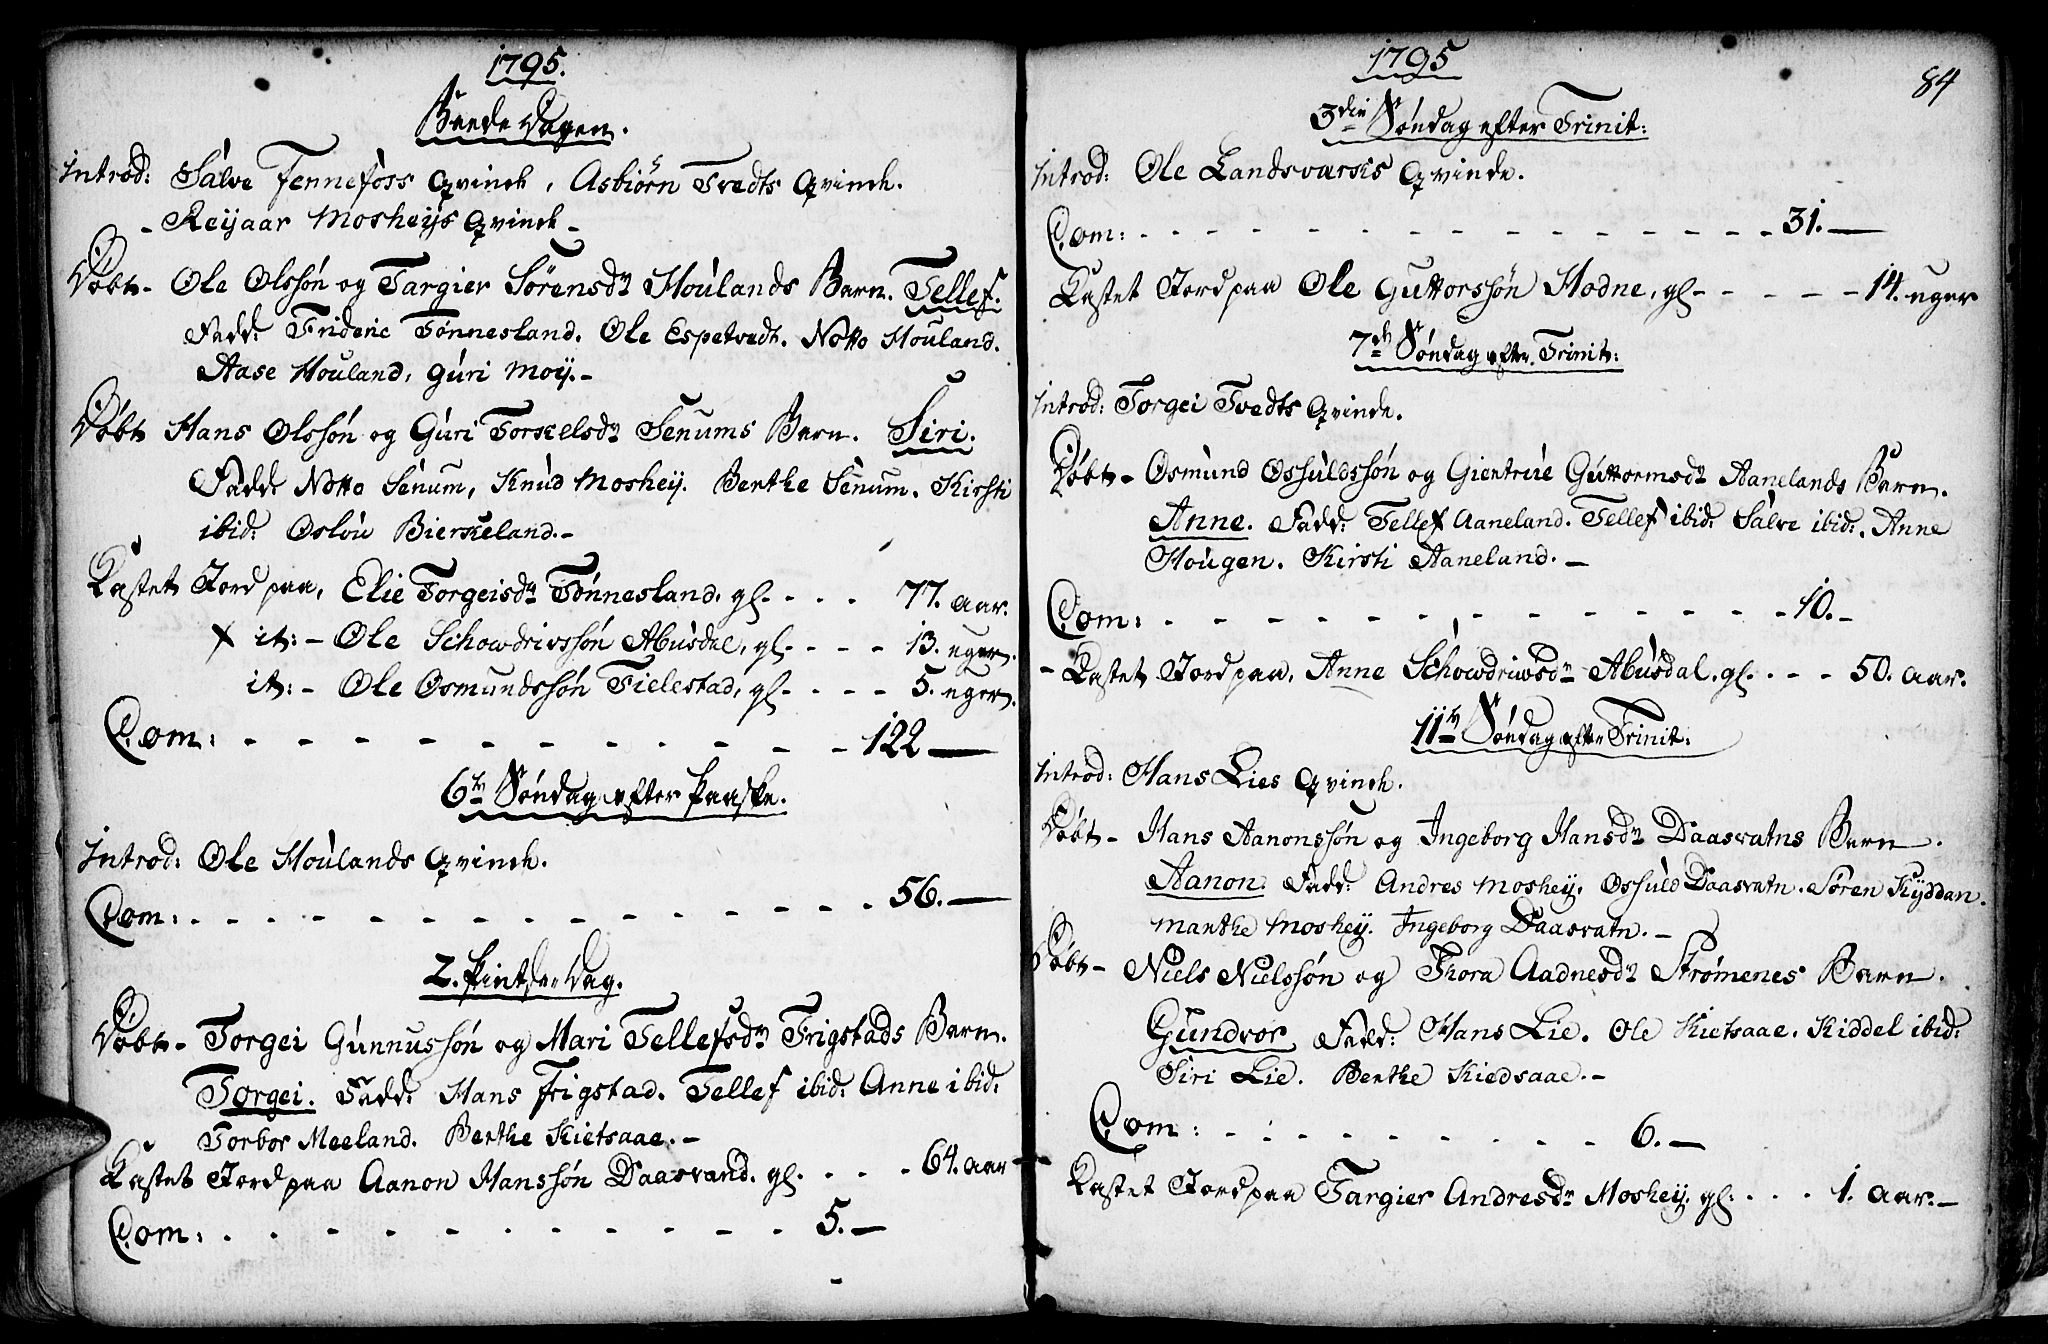 1795.
Beede Dagen.
Introd: Salve Fennefoss Qvinde, Asbiørn Tvedts Qvinde.
- Reijaar Mosheijs Qvinde -
Døbt - Ole Olssøn og Targier Sørensdr Houlands Barn. Tellef.
Fadd: Frideric Tønnesland. Ole Espetvedt. Notto Houland.
Aase Houland, Guri Moij. -
Døbt Hans Olssøn og Guri Torkelsdr Senums Barn. Siri.
Fadd: Notto Senum, Knud Moshey. Berthe Senum. Kirsti
ibid: Oslou Bierkeland. -
Kastet Jord paa, Elie Torgeisdr Tønnesland. gl. - - - 77. aar.
+ it: - Ole Schowdrivssøn Abusdal, gl. - - - 13. uger.
it: - Ole Osmundssøn Fielestad, gl - - - - 5. uger.
Com: - - - - - - - - - - - 122 —
6te Søndag efter Paaske.
Introd: Ole Houlands Qvinde.
Com: - - - - - - - - - - - - 56. —
2. Pintse Dag.
Døbt - Torgei Gunnussøn og Mari Tellefsdr Frigstads Barn.
Torgei. Fadd: Hans Frigstad. Tellef ibid: Anne ibid:
Torbor Meeland. Berthe Kietsaae. -
Kastet Jord paa Aanon Hanssøn Daasvand. gl. - - - 64. aar
Com: - - - - - - - - - - - 5. —
1795
84
3die Søndag efter Trinit:
Introd: Ole Landsværks Qvinde.
Com: - - - - - - - - - - - - - 31. —
Kastet Jord paa Ole Guttorssøn Hodne, gl - - - - - 14. uger
7de Søndag efter Trinit:
Introd: Torgei Tvedts Qvinde.
Døbt - Osmund Ossuldssøn og Gientrue Guttormsdr Aanelands Barn.
Anne. Fadd: Tellef Aaneland. Tellef ibid: Salve ibid:. Anne
Hougen. Kirsti Aaneland. —
Com: - - - - - - - - - - - - 10. -
- Kastet Jord paa, Anne Schowdriwsdr Abusdal. gl. - - - 50. aar.
11te Søndag efter Trinit:
Introd: Hans Lies Qvinde.
Døbt - Hans Aanonssøn og Ingeborg Hansdr Daasvatns Barn.
Aanon. Fadd: Andres Moshey, Ossuld Daasvatn. Søren Kyddan.
Marthe Moshey. Ingeborg Daasvatn. —
Døbt - Niels Nielssøn og Thora Aadnesdr Strømenes Barn.
Gundvor Fadd: Hans Lie. Ole Kietsaae. Kiddel ibid:
Siri Lie. Berthe Kiedsaae. -
Com: - - - - - - - - - - 6. —
Kastet Jord paa Targier Andresdr Moshey. gl. - - - 1. aar. -